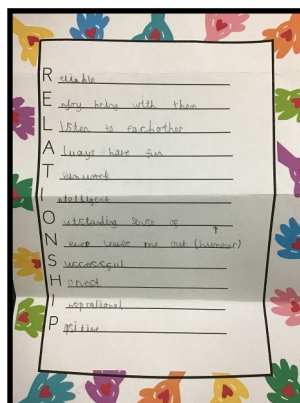 Reliable
Enjoy being with them
Listen to eachother
Always have fun
Teamwork
Intelligent
Outstanding sense of
Never leaves me out (humour)
Successful
Honest
Inspirational
Positive